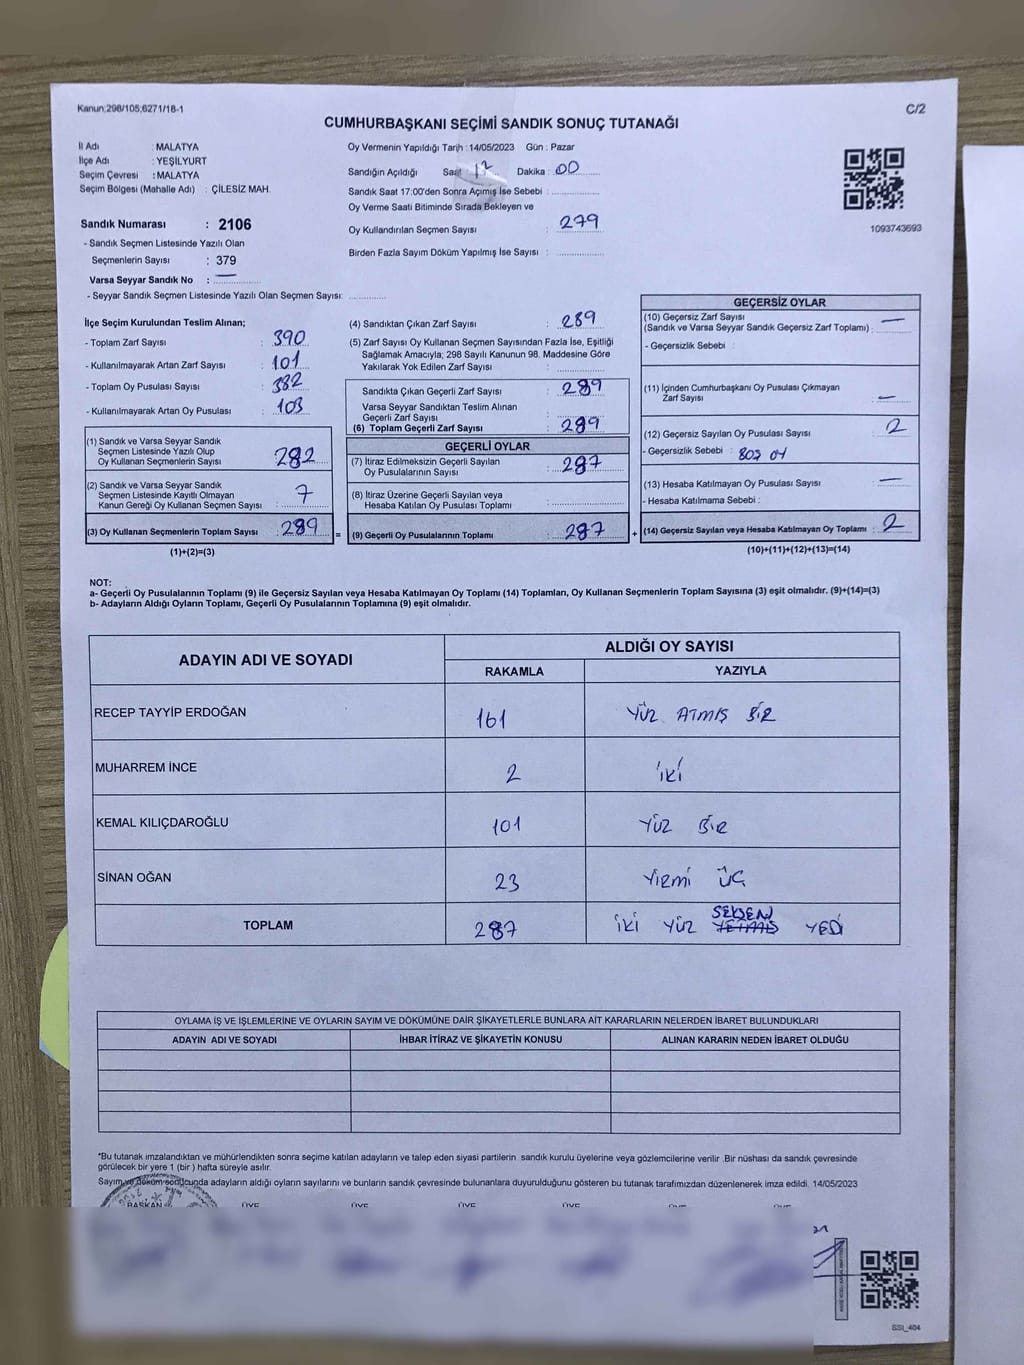 Kanun:298/105,6271/18-1
C/2
CUMHURBAŞKANI SEÇİMİ SANDIK SONUÇ TUTANAĞI
İl Adı : MALATYA
İlçe Adı : YEŞİLYURT
Seçim Çevresi : MALATYA
Seçim Bölgesi (Mahalle Adı) : ÇİLESİZ MAH.
Sandık Numarası : 2106
- Sandık Seçmen Listesinde Yazılı Olan
Seçmenlerin Sayısı : 379
Varsa Seyyar Sandık No : —
- Seyyar Sandık Seçmen Listesinde Yazılı Olan Seçmen Sayısı:
Oy Vermenin Yapıldığı Tarih : 14/05/2023 Gün : Pazar
Sandığın Açıldığı Saat : 17 Dakika : 00
Sandık Saat 17:00'den Sonra Açımış İse Sebebi :
Oy Verme Saati Bitiminde Sırada Bekleyen ve
Oy Kullandırılan Seçmen Sayısı : 279
Birden Fazla Sayım Döküm Yapılmış İse Sayısı :
1093743693
İlçe Seçim Kurulundan Teslim Alınan;
- Toplam Zarf Sayısı : 390
- Kullanılmayarak Artan Zarf Sayısı : 101
- Toplam Oy Pusulası Sayısı : 382
- Kullanılmayarak Artan Oy Pusulası : 103
(1) Sandık ve Varsa Seyyar Sandık
Seçmen Listesinde Yazılı Olup
Oy Kullanan Seçmenlerin Sayısı 282
(2) Sandık ve Varsa Seyyar Sandık
Seçmen Listesinde Kayıtlı Olmayan
Kanun Gereği Oy Kullanan Seçmen Sayısı : 7
(3) Oy Kullanan Seçmenlerin Toplam Sayısı : 289
(1)+(2)=(3)
(4) Sandıktan Çıkan Zarf Sayısı : 289
(5) Zarf Sayısı Oy Kullanan Seçmen Sayısından Fazla İse, Eşitliği
Sağlamak Amacıyla; 298 Sayılı Kanunun 98. Maddesine Göre
Yakılarak Yok Edilen Zarf Sayısı :
Sandıkta Çıkan Geçerli Zarf Sayısı : 289
Varsa Seyyar Sandıktan Teslim Alınan
Geçerli Zarf Sayısı :
(6) Toplam Geçerli Zarf Sayısı : 289
GEÇERLİ OYLAR
(7) İtiraz Edilmeksizin Geçerli Sayılan
Oy Pusulalarının Sayısı : 287
(8) İtiraz Üzerine Geçerli Sayılan veya
Hesaba Katılan Oy Pusulası Toplamı :
= (9) Geçerli Oy Pusulalarının Toplamı : 287
GEÇERSİZ OYLAR
(10) Geçersiz Zarf Sayısı
(Sandık ve Varsa Seyyar Sandık Geçersiz Zarf Toplamı) : —
- Geçersizlik Sebebi :
(11) İçinden Cumhurbaşkanı Oy Pusulası Çıkmayan
Zarf Sayısı : —
(12) Geçersiz Sayılan Oy Pusulası Sayısı : 2
- Geçersizlik Sebebi : BOŞ OY
(13) Hesaba Katılmayan Oy Pusulası Sayısı : —
- Hesaba Katılmama Sebebi :
+ (14) Geçersiz Sayılan veya Hesaba Katılmayan Oy Toplamı : 2
(10)+(11)+(12)+(13)=(14)
NOT:
a- Geçerli Oy Pusulalarının Toplamı (9) ile Geçersiz Sayılan veya Hesaba Katılmayan Oy Toplamı (14) Toplamları, Oy Kullanan Seçmenlerin Toplam Sayısına (3) eşit olmalıdır. (9)+(14)=(3)
b- Adayların Aldığı Oyların Toplamı, Geçerli Oy Pusulalarının Toplamına (9) eşit olmalıdır.
ADAYIN ADI VE SOYADI
ALDIĞI OY SAYISI
RAKAMLA YAZIYLA
RECEP TAYYİP ERDOĞAN 161 YÜZ ATMIŞ BİR
MUHARREM İNCE 2 İKİ
KEMAL KILIÇDAROĞLU 101 YÜZ BİR
SİNAN OĞAN 23 YİRMİ ÜÇ
TOPLAM 287 İKİ YÜZ YETMİŞ SEKSEN YEDİ
OYLAMA İŞ VE İŞLEMLERİNE VE OYLARIN SAYIM VE DÖKÜMÜNE DAİR ŞİKAYETLERLE BUNLARA AİT KARARLARIN NELERDEN İBARET BULUNDUKLARI
ADAYIN ADI VE SOYADI İHBAR İTİRAZ VE ŞİKAYETİN KONUSU ALINAN KARARIN NEDEN İBARET OLDUĞU
*Bu tutanak imzalandıktan ve mühürlendikten sonra seçime katılan adayların ve talep eden siyasi partilerin sandık kurulu üyelerine veya gözlemcilerine verilir .Bir nüshası da sandık çevresinde
görülecek bir yere 1 (bir ) hafta süreyle asılır.
Sayım ve döküm sonucunda adayların aldığı oyların sayılarını ve bunların sandık çevresinde bulunanlara duyurulduğunu gösteren bu tutanak tarafımızdan düzenlenerek imza edildi. 14/05/2023
BAŞKAN ÜYE ÜYE ÜYE ÜYE ÜYE ÜYE
SSI_404